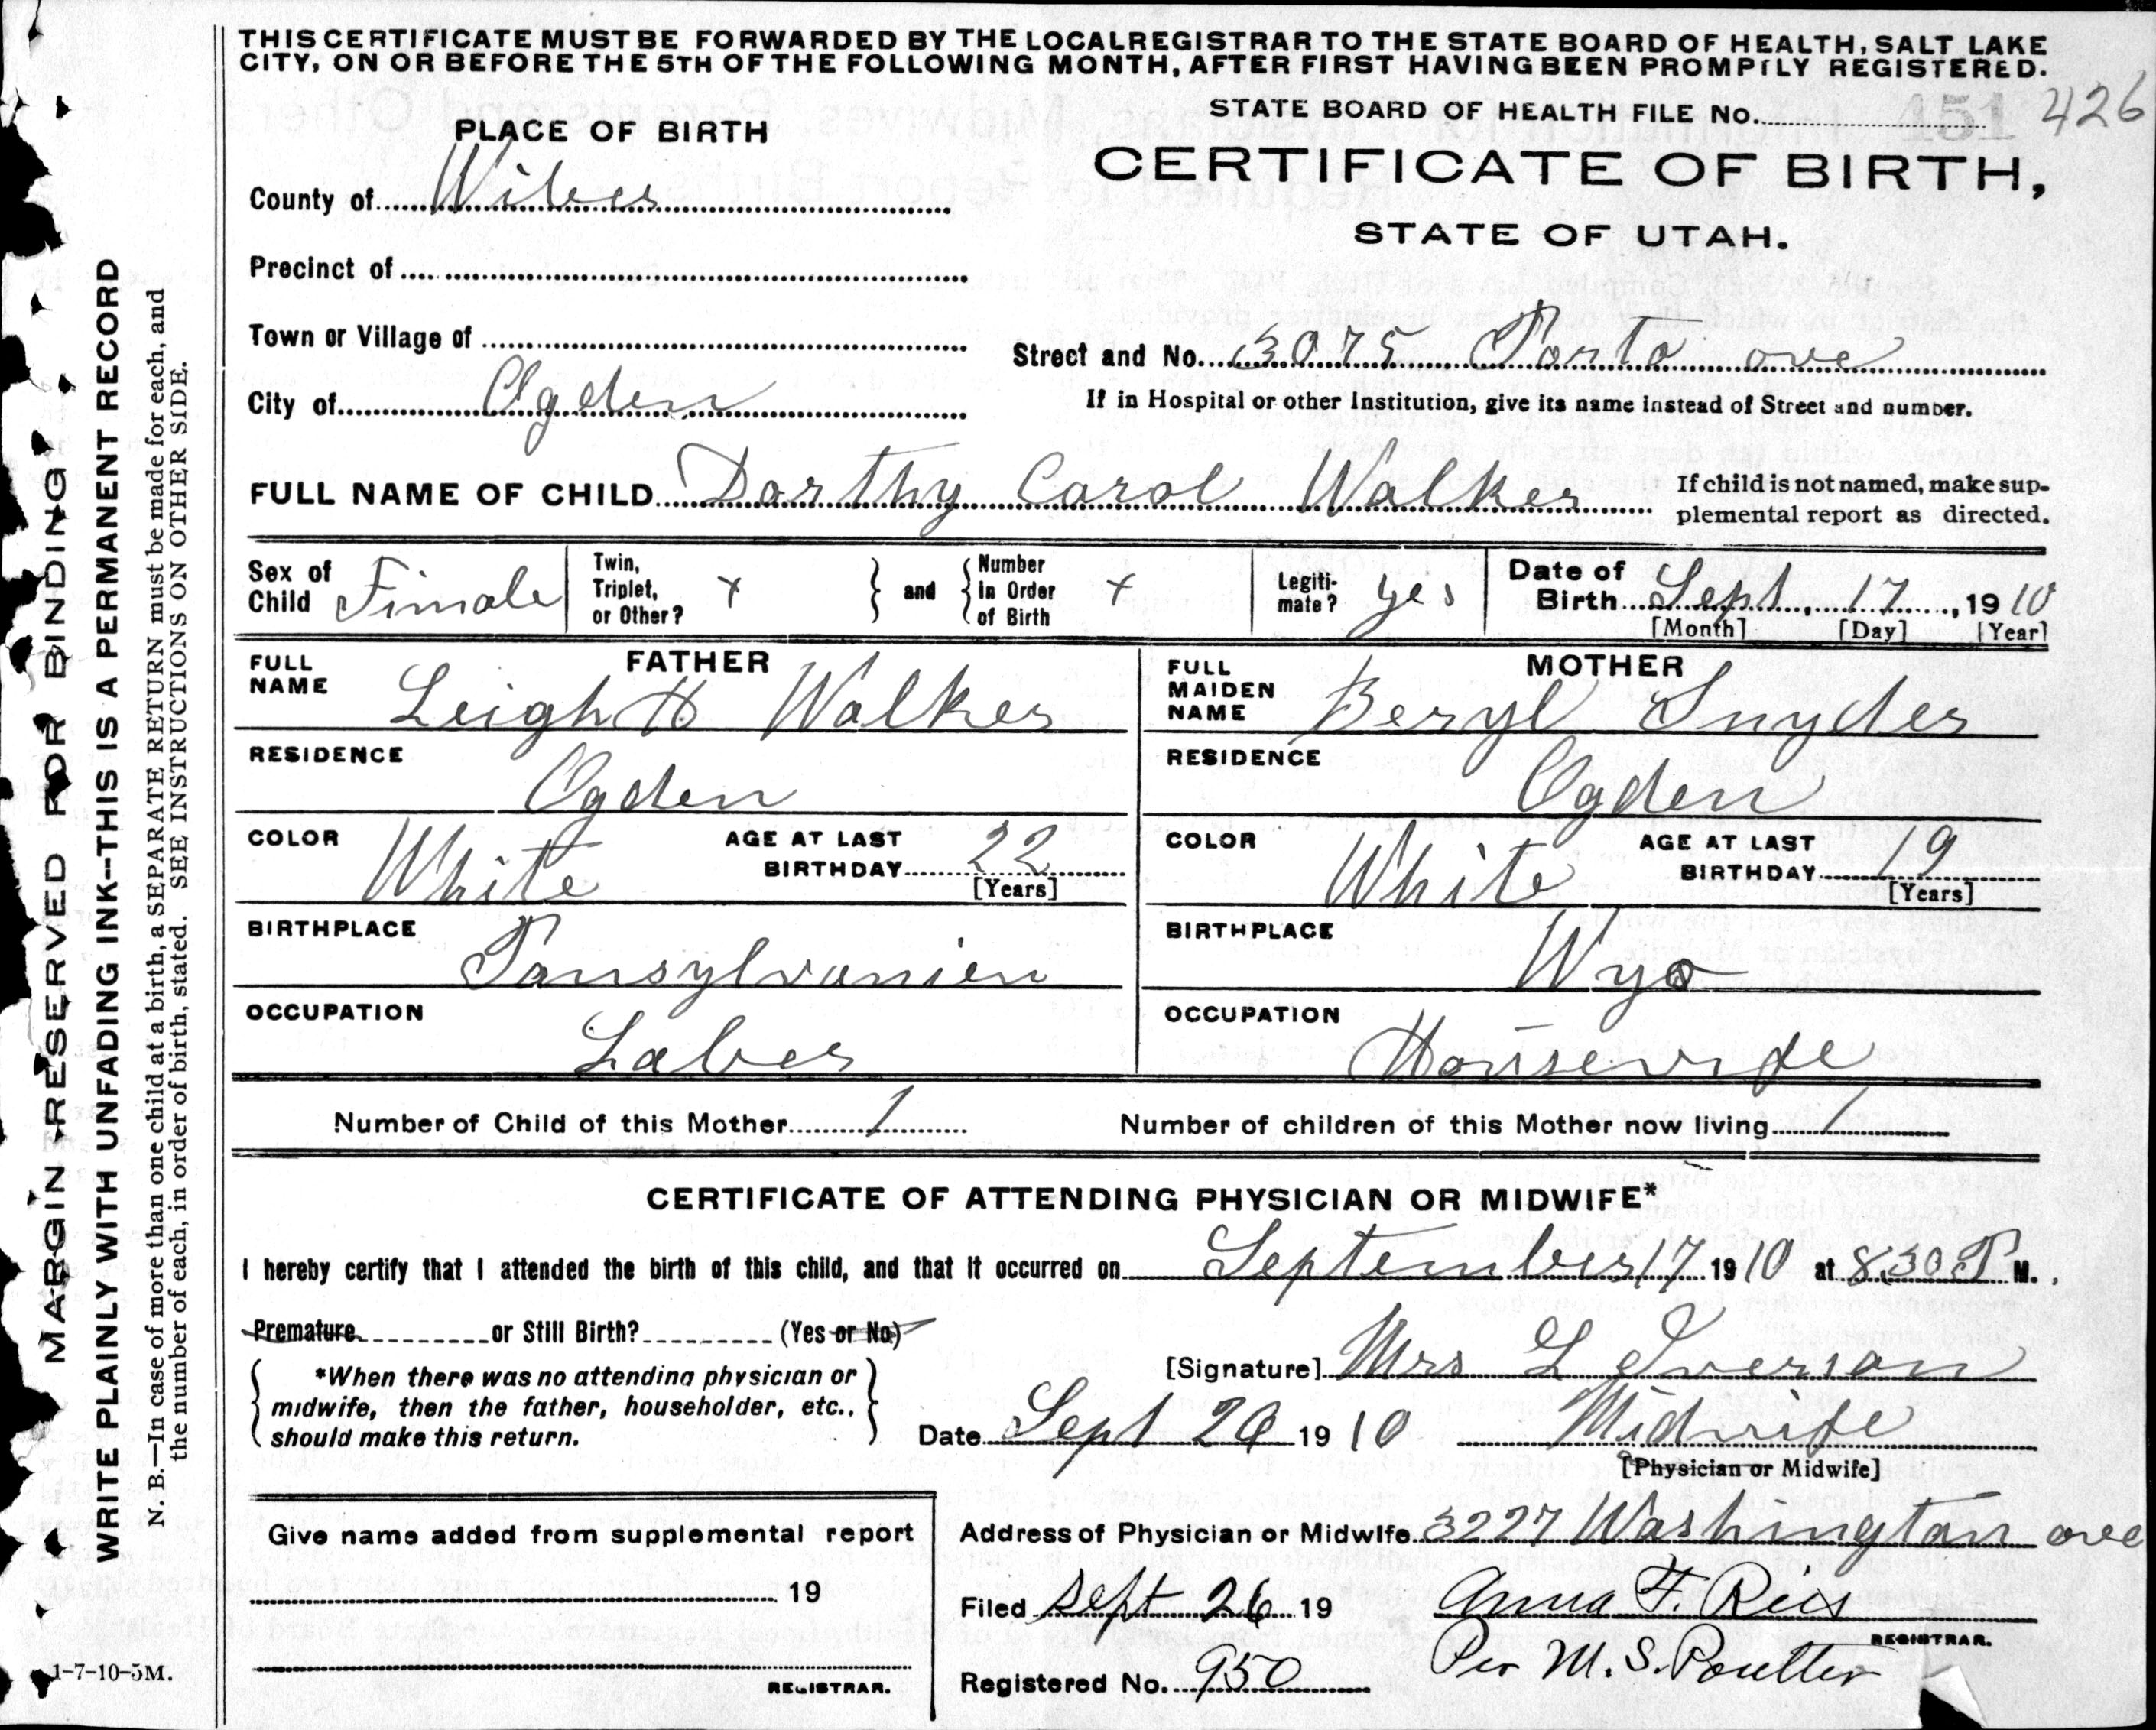 THIS CERTIFICATE MUST BE FORWARDED BY THE LOCAL REGISTRAR TO THE STATE BOARD OF HEALTH, SALT LAKE
CITY, ON OR BEFORE THE 5TH OF THE FOLLOWING MONTH, AFTER FIRST HAVING BEEN PROMPTLY REGISTERED.
STATE BOARD OF HEALTH FILE No. 151 426
PLACE OF BIRTH
CERTIFICATE OF BIRTH,
STATE OF UTAH.
County of Wiber
Precinct of
Town or Village of
Street and No. 3075 Porto ave
City of Ogden
If in Hospital or other Institution, give its name instead of Street and number.
FULL NAME OF CHILD Dorthy Carol Walker
If child is not named, make sup-
plemental report as directed.
Sex of Child Fimale
Twin, Triplet, or Other? +
and
Number in Order of Birth +
Legiti-mate? yes
Date of Birth Sept, 17, 1910
[Month] [Day] [Year]
FATHER
FULL NAME Leigh H Walker
RESIDENCE Ogden
COLOR White
AGE AT LAST BIRTHDAY 22
[Years]
BIRTHPLACE Pansylvanien
OCCUPATION Laber
MOTHER
FULL MAIDEN NAME Beryl Snyder
RESIDENCE Ogden
COLOR White
AGE AT LAST BIRTHDAY 19
[Years]
BIRTHPLACE Wyo
OCCUPATION Housewife
Number of Child of this Mother 1 Number of children of this Mother now living 1
CERTIFICATE OF ATTENDING PHYSICIAN OR MIDWIFE*
I hereby certify that I attended the birth of this child, and that it occurred on September 17 1910 at 8.30 P M.
Premature or Still Birth? (Yes or No)
*When there was no attending physician or
midwife, then the father, householder, etc.,
should make this return.
[Signature] Mrs L Iverson
Date Sept 20 1910 Midwife
[Physician or Midwife]
Give name added from supplemental report
19
REGISTRAR.
Address of Physician or Midwife 3227 Washington ave
Filed Sept 26 19 Anna F. Ries
REGISTRAR.
Per M. S. Poulter
Registered No. 950
1-7-10-5M.
MARGIN RESERVED FOR BINDING
WRITE PLAINLY WITH UNFADING INK--THIS IS A PERMANENT RECORD
N. B.—In case of more than one child at a birth, a SEPARATE RETURN must be made for each, and
the number of each, in order of birth, stated. SEE INSTRUCTIONS ON OTHER SIDE.